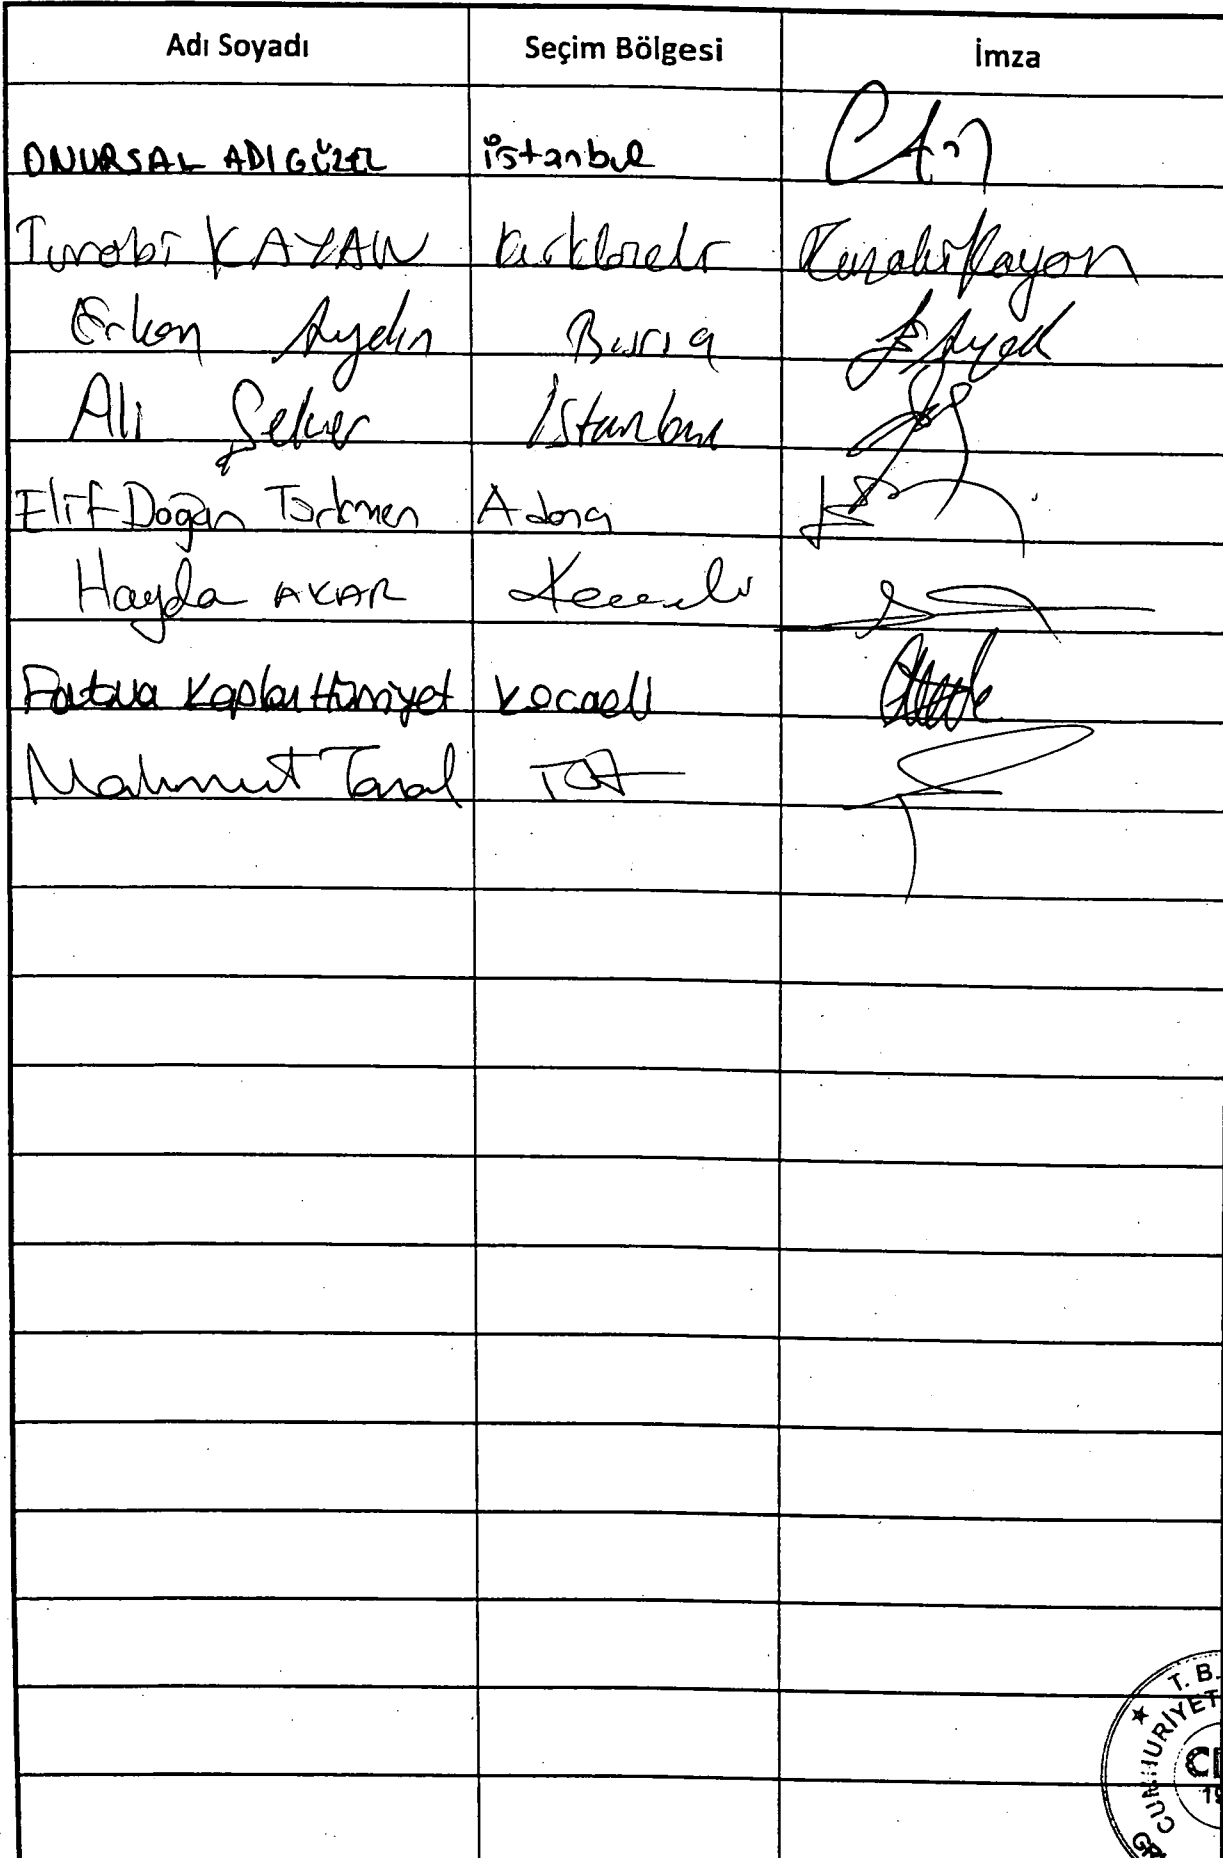 Adı Soyadı Seçim Bölgesi İmza
ONURSAL ADIGÜZEL istanbul
Turabi KAYAN Kırklareli Turabi Kayan
Erkan Aydın Bursa E Aydın
Ali Şeker İstanbul
Elif Doğan Türkmen Adana
Hayda AKAR Kocaeli
Fatma Kaplan Hürriyet Kocaeli
Mahmut Tanal İST
T. B.
CUMHURİYET